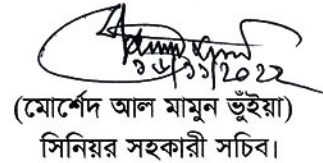 ১৬/১১/২০২২
(মোর্শেদ আল মামুন ভুঁইয়া)
সিনিয়র সহকারী সচিব।